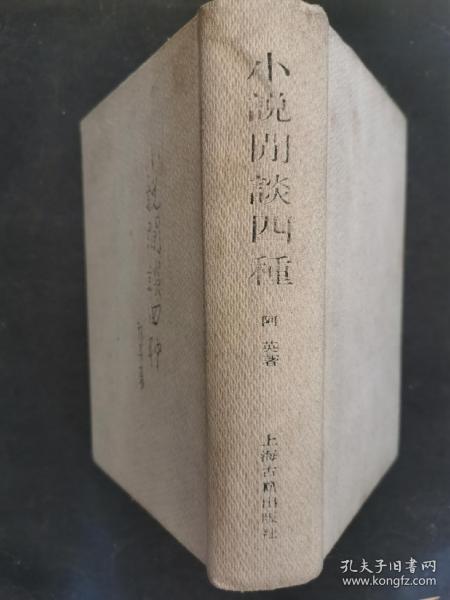 小説閒談四種
阿英著
上海古籍出版社
小説閒談四種
孔夫子旧书网
www.kongfz.com